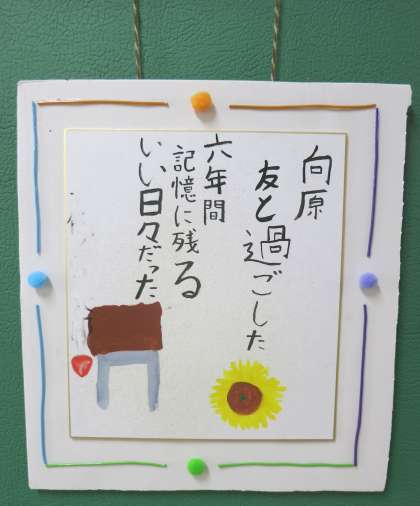 向原
友と過ごした
六年間
記憶に残る
いい日々だった